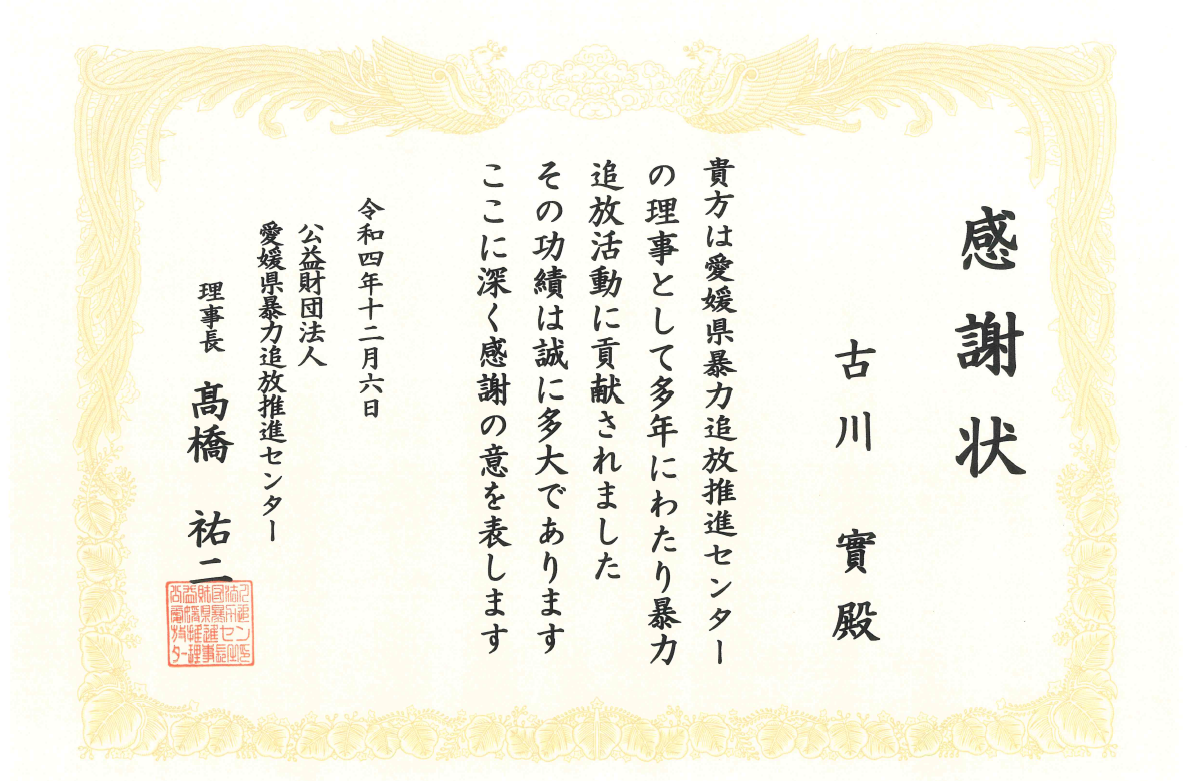 感謝状
古川 實 殿
貴方は愛媛県暴力追放推進センター
の理事として多年にわたり暴力
追放活動に貢献されました
その功績は誠に多大であります
ここに深く感謝の意を表します
令和四年十二月六日
公益財団法人
愛媛県暴力追放推進センター
理事長 髙橋 祐二